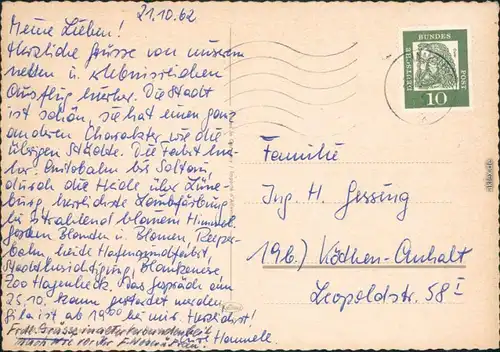 21.10.62
Meine Lieben!
Herzliche Grüsse von unserem
netten u. erlebnisreichen
Ausflug hierher. Die Stadt
ist schön, sie hat einen ganz
anderen Charakter wie die
übrigen Städte. Die Fahrt hie-
her. Autobahn bis Soltau,
durch die Heide über Lüne-
burg, herrlichste Laubfärbung
bei strahlend blauem Himmel.
Gestern Blanden u. Blomen, Reeper-
bahn, heute Hafenrundfahrt,
Stadtbesichtigung, Blankenese,
Zoo Hagenbeck. Das Gespräch am
25.10. kann gestartet werden
ist ab 19 bei mir. Herzlichst!
Hannele
DEUTSCHE
BUNDES
POST
10
Familie
Ing. H. Gessing
19b.) Köthen-Anhalt
Leopoldstr. 58 I